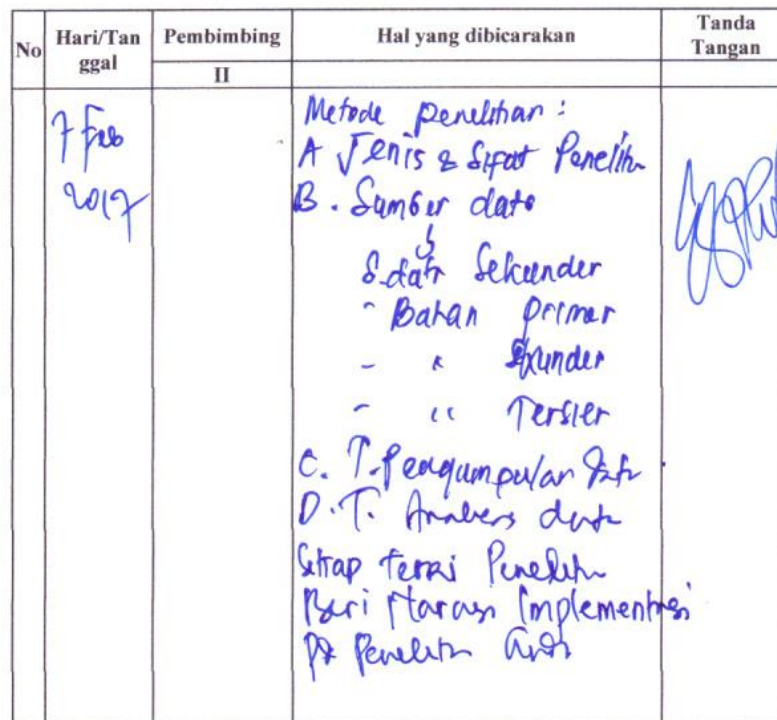 No
Hari/Tan
ggal
Pembimbing
II
Hal yang dibicarakan
Tanda
Tangan
7 Feb
2017
Metode Penelitian :
A Jenis & Sifat Penelitn
B. Sumber data
S.data Sekunder
- Bahan primer
- " Sekunder
- " Tersier
C. T. Pengumpulan Data
D. T. Analisis data
Setiap Teori Penelitn
Beri Narasi Implementasi
Penelitn Anda